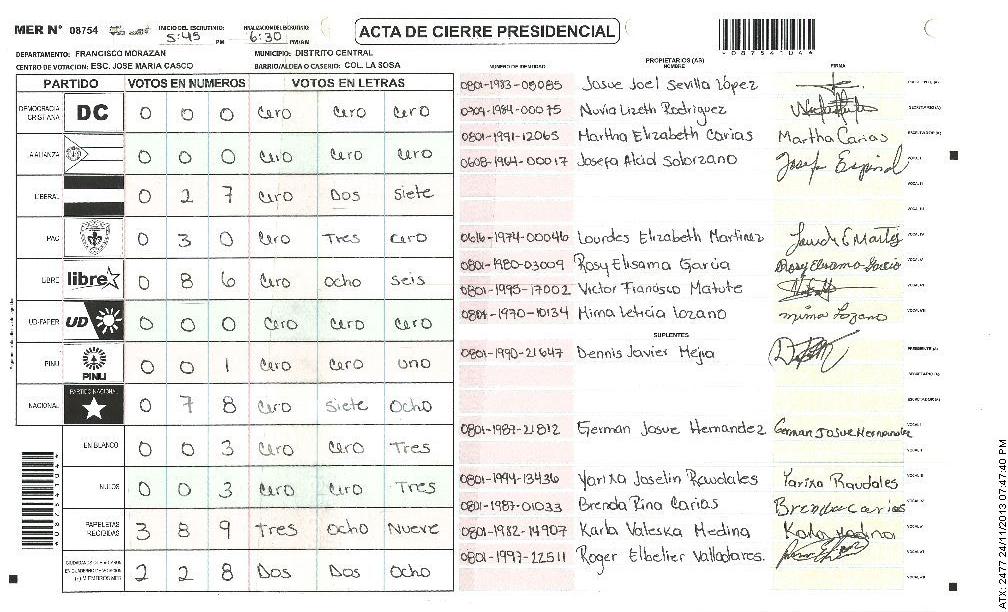 MER N° 08754 INICIO DEL ESCRUTINIO 5:45 PM FINALIZACION DEL ESCRUTINIO 6:30 PM/AM
ACTA DE CIERRE PRESIDENCIAL
DEPARTAMENTO: FRANCISCO MORAZAN MUNICIPIO: DISTRITO CENTRAL
CENTRO DE VOTACION: ESC. JOSE MARIA CASCO BARRIO/ALDEA O CASERIO: COL. LA SOSA
PARTIDO VOTOS EN NUMEROS VOTOS EN LETRAS
DEMOCRACIA CRISTIANA DC 0 0 0 Cero Cero Cero
ALIANZA 0 0 0 Cero Cero Cero
LIBERAL 0 2 7 Cero Dos Siete
PAC 0 3 0 Cero Tres Cero
LIBRE libre 0 8 6 Cero Ocho Seis
UD-FAPER UD 0 0 0 Cero Cero Cero
PINU PINU 0 0 1 Cero Cero uno
NACIONAL PARTIDO NACIONAL 0 7 8 Cero Siete Ocho
EN BLANCO 0 0 3 Cero Cero Tres
NULOS 0 0 3 Cero Cero Tres
PAPELETAS RECIBIDAS 3 8 9 Tres Ocho Nueve
2 2 8 Dos Dos Ocho
NUMERO DE IDENTIDAD PROPIETARIOS (AS) NOMBRE FIRMA
0801-1983-05085 Josue Joel Sevilla López
0704-1984-00075 Nuvia Lizeth Rodriguez
0801-1991-12065 Martha Elizabeth Carias Martha Carias
0608-1964-00017 Josefa Solorzano Josefa Espinal
0616-1974-00046 Lourdes Elizabeth Martinez
0801-1980-03009 Rosy Elisama Garcia Rosy Elisama Garcia
0801-1995-17002 Victor Francisco Matute
0801-1970-10134 Mirna Leticia Lozano mirna Lozano
SUPLENTES
0801-1990-21647 Dennis Javier Mejia
0801-1987-21812 German Josue Hernandez German Josue Hernandez
0801-1994-13436 Yarixa Joselin Raudales Yarixa Raudales
0801-1987-01033 Brenda Rina Carias Brenda Carias
0801-1982-14907 Karla Valeska Medina Karla Medina
0801-1997-22511 Roger Elbelier Valladares.
ATX: 2477 24/11/2013 07:47:40 PM